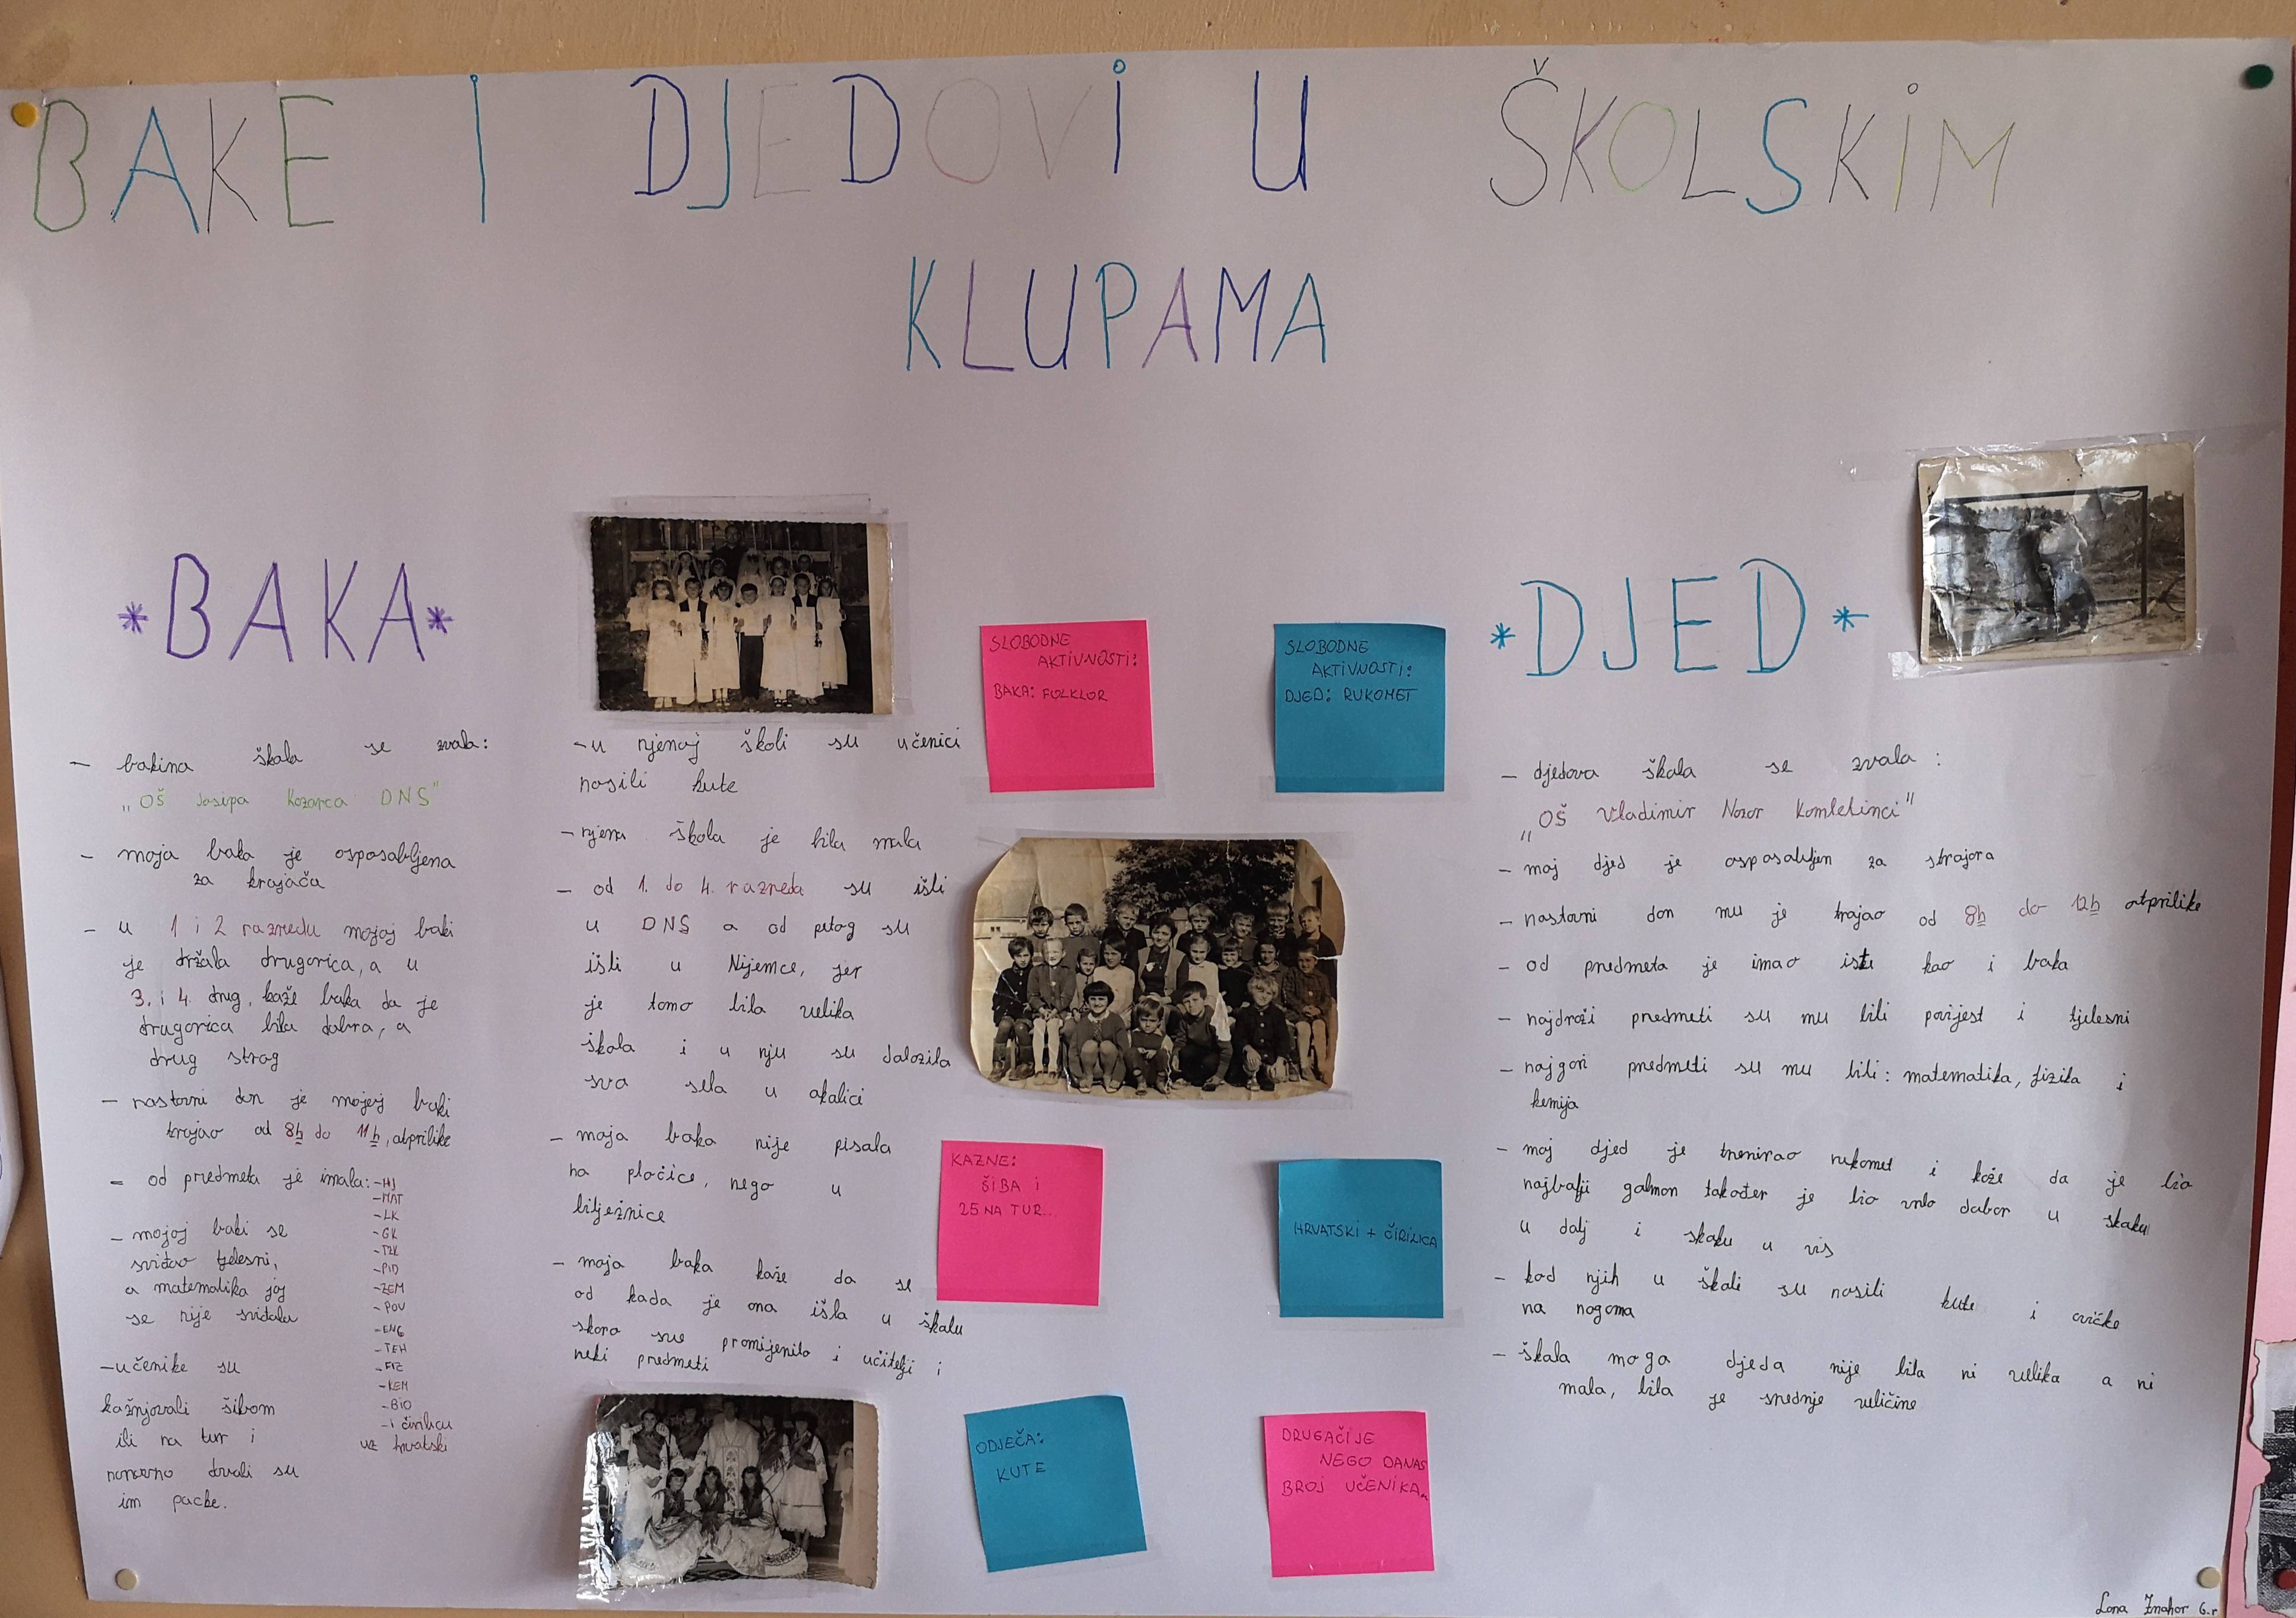 BAKE I DJEDOVI U ŠKOLSKIM
KLUPAMA
*BAKA*
- bakina škola se zvala:
„OŠ Josipa Kozarca DNS"
- moja baka je osposobljena
za krojača
- u 1 i 2 razredu mojoj baki
je držala drugorica, a u
3. i 4. drug, kaže baka da je
drugorica bila dobra, a
drug strog
- nastavni dan je mojoj baki
trajao od 8h do 11h, otprilike
- od predmeta je imala: - HJ
- MAT
- LK
- GK
- TZK
- PID
- ZEM
- POV
- ENG
- TEH
- FIZ
- KEM
- BIO
- i ćirilicu
uz hrvatski
- mojoj baki se
sviđao tjelesni,
a matematika joj
se nije sviđala
- učenike su
kažnjavali šibom
ili na tur i
naravno davali su
im packe.
- u njenoj školi su učenici
nosili kute
- njena škola je bila mala
- od 1. do 4. razreda su išli
u DNS a od petog su
išli u Nijemce, jer
je tamo bila velika
škola i u nju su dolazila
sva sela u okolici
- moja baka nije pisala
na pločice, nego u
bilježnice
- moja baka kaže da se
od kada je ona išla u školu
skoro sve promijenilo i učitelji i
neki predmeti
SLOBODNE
AKTIVNOSTI:
BAKA: FOLKLOR
SLOBODNE
AKTIVNOSTI:
DJED: RUKOMET
KAZNE:
ŠIBA I
25 NA TUR...
HRVATSKI + ĆIRILICA
ODJEČA:
KUTE
DRUGAČIJE
NEGO DANAS
BROJ UČENIKA...
*DJED*
- djedova škola se zvala:
„OŠ Vladimir Nazor Komletinci"
- moj djed je osposobljen za strojara
- nastavni dan mu je trajao od 8h do 12h otprilike
- od predmeta je imao iste kao i baka
- najdraži predmeti su mu bili povijest i tjelesni
- najgori predmeti su mu bili: matematika, fizika i
kemija
- moj djed je trenirao rukomet i kaže da je bio
najbolji golman također je bio vrlo dobar u skoku
u dalj i skoku u vis
- kod njih u školi su nosili kute i cvičke
na nogama
- škola moga djeda nije bila ni velika a ni
mala, bila je srednje veličine
Lona Znahor 6.r